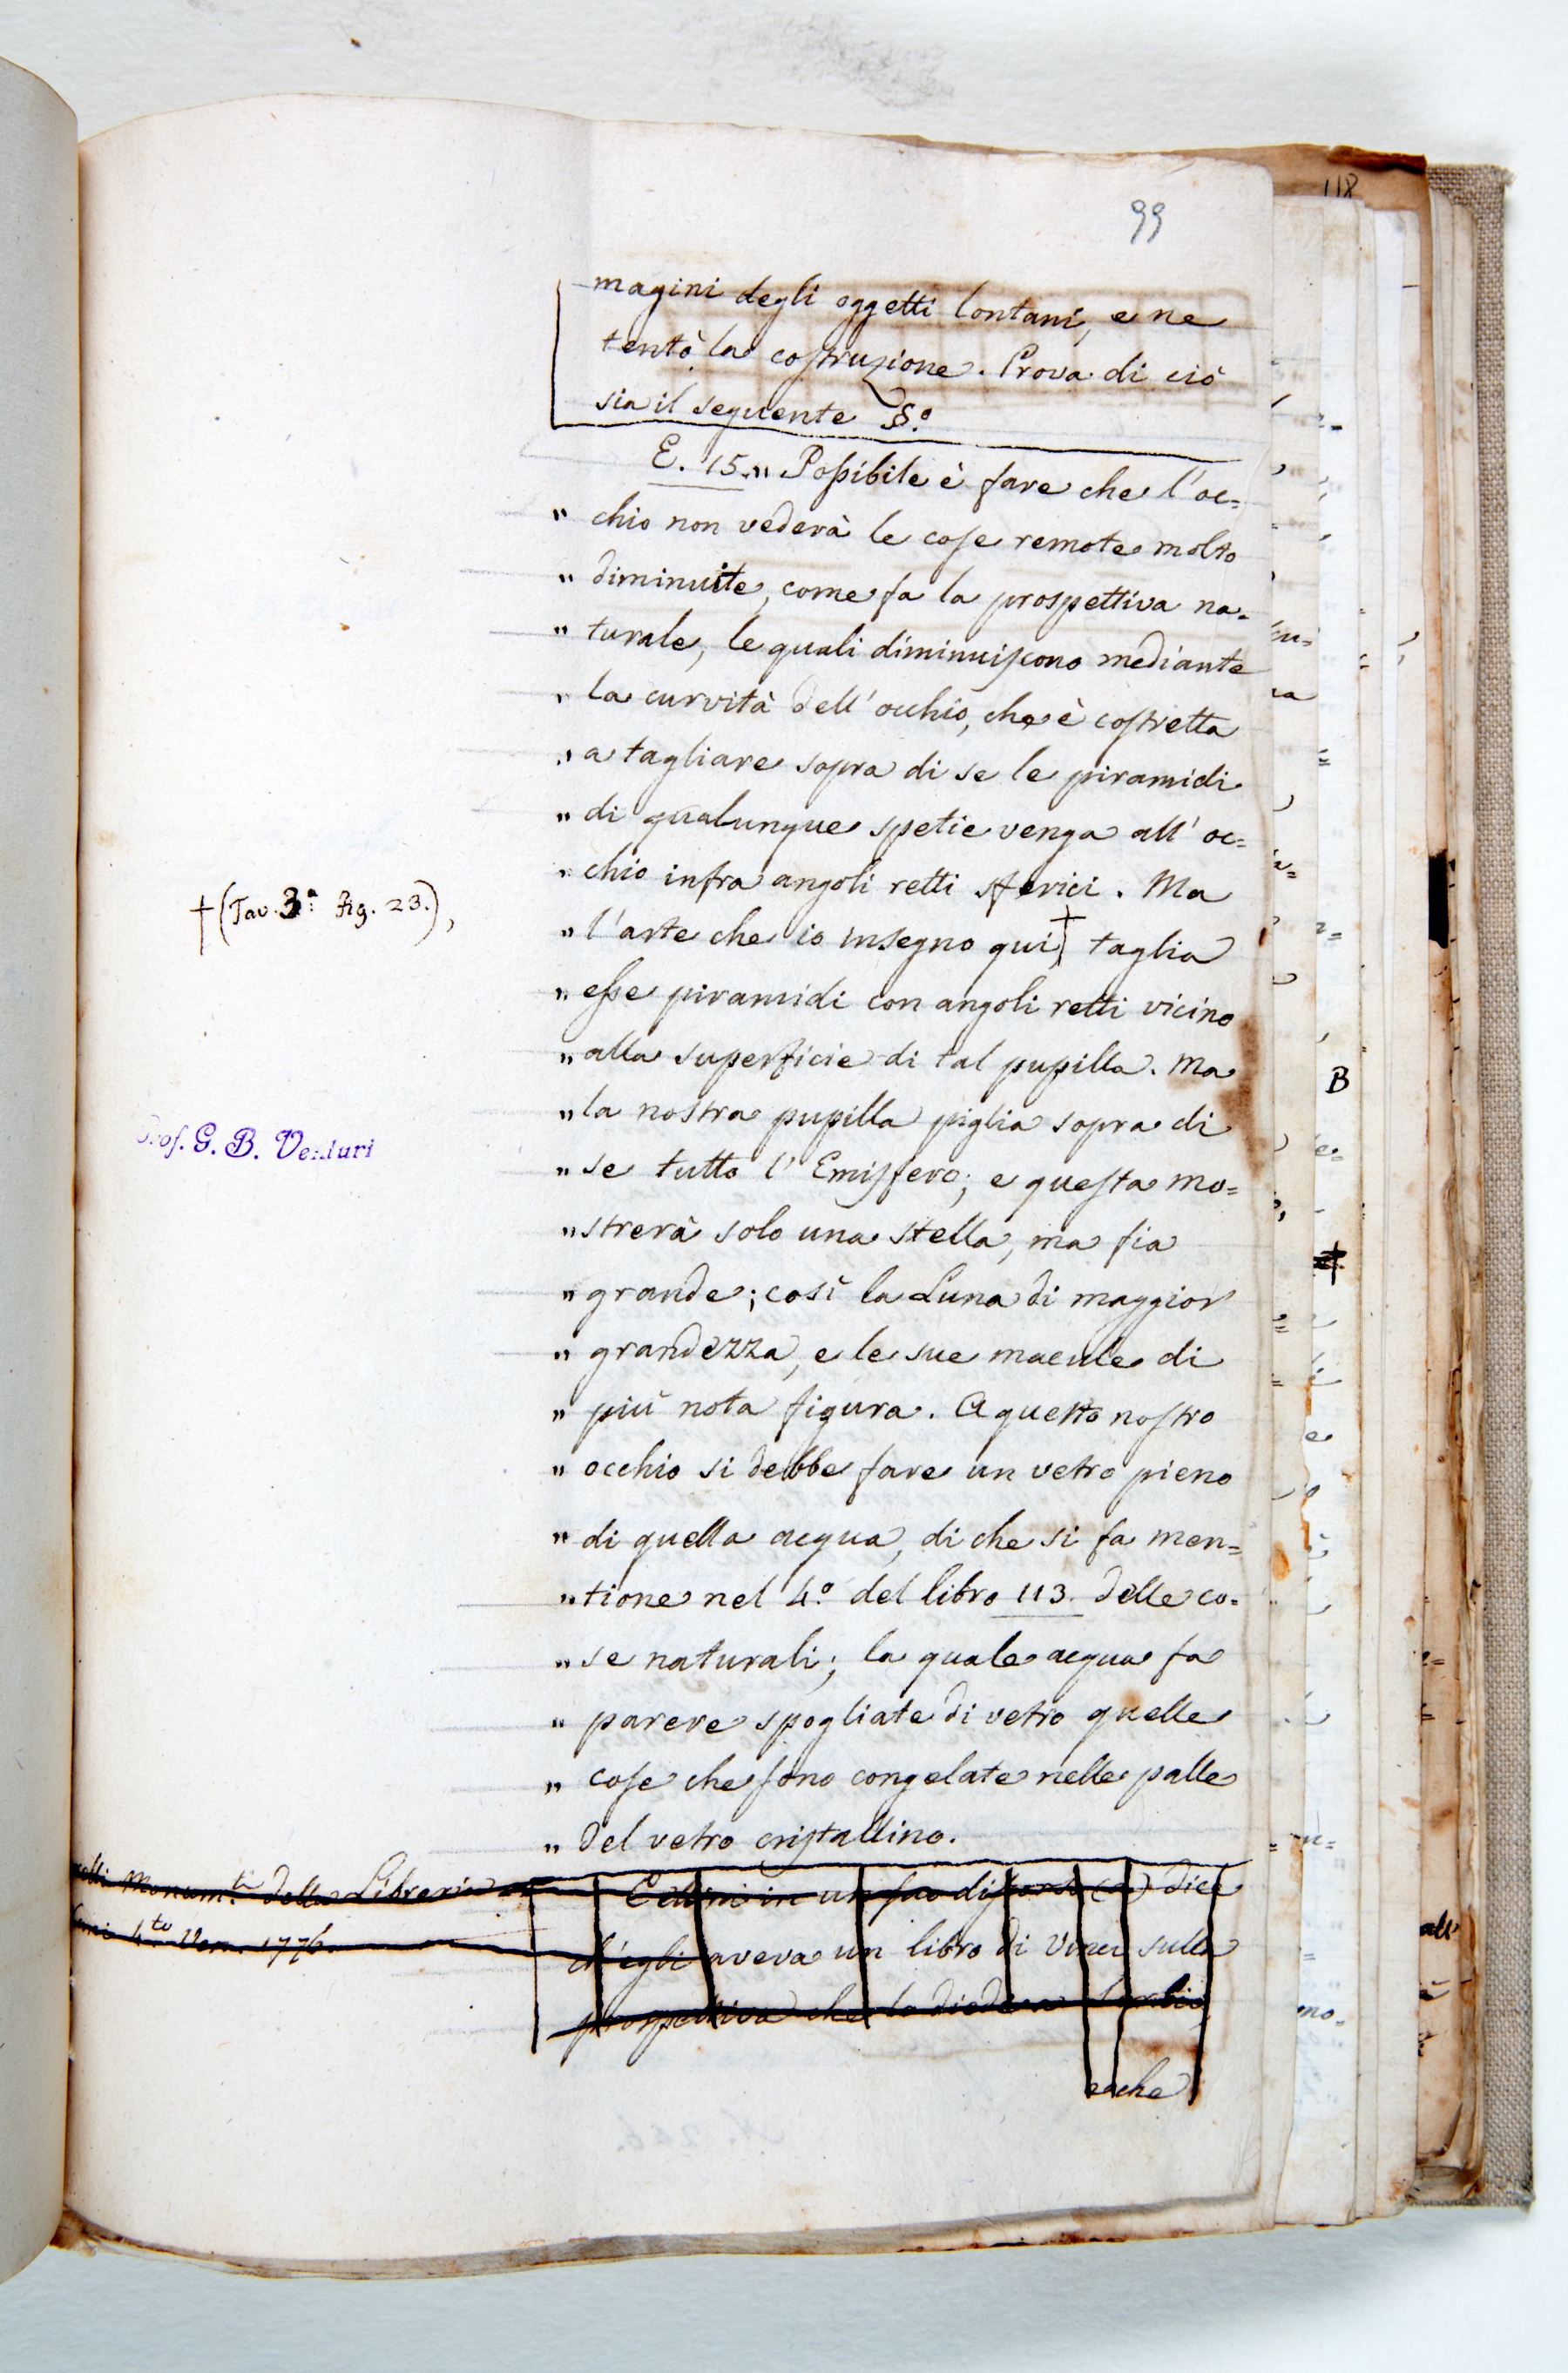 99
118
magini degli oggetti lontani, e ne
tentò la costruzione. Prova di ciò
sia il seguente §.º
E. 15." Possibile è fare che l'oc=
" chio non vederà le cose remote molto
" diminuite, come fa la prospettiva na=
" turale, le quali diminuiscono mediante
" la curvità dell'occhio, che è costretta
" a tagliare sopra di se le piramidi
" di qualunque spetie venga all'oc=
" chio infra angoli retti sferici. Ma
" l'arte che io insegno qui,† taglia
†(Tav. 3.ª Fig. 23.),
" esse piramidi con angoli retti vicino
" alla superficie di tal pupilla. Ma
" la nostra pupilla piglia sopra di
Prof. G. B. Venturi
" se tutto l'Emisfero; e questa mo=
" strerà solo una stella, ma fia
" grande; così la Luna di maggior
" grandezza, e le sue macule di
" più nota figura. A questo nostro
" occhio si debbe fare un vetro pieno
" di quella acqua, di che si fa men=
" tione nel 4.º del libro 113. delle co=
" se naturali; la quale acqua fa
" parere spogliate di vetro quelle
" cose che sono congelate nelle palle
" del vetro cristallino.
Monum.ti della Libreria
4.to Ven. 1776.
Cellini in un suo discorso (a) dice
ch'egli aveva un libro di Vinci sulla
prospettiva che
e che
B